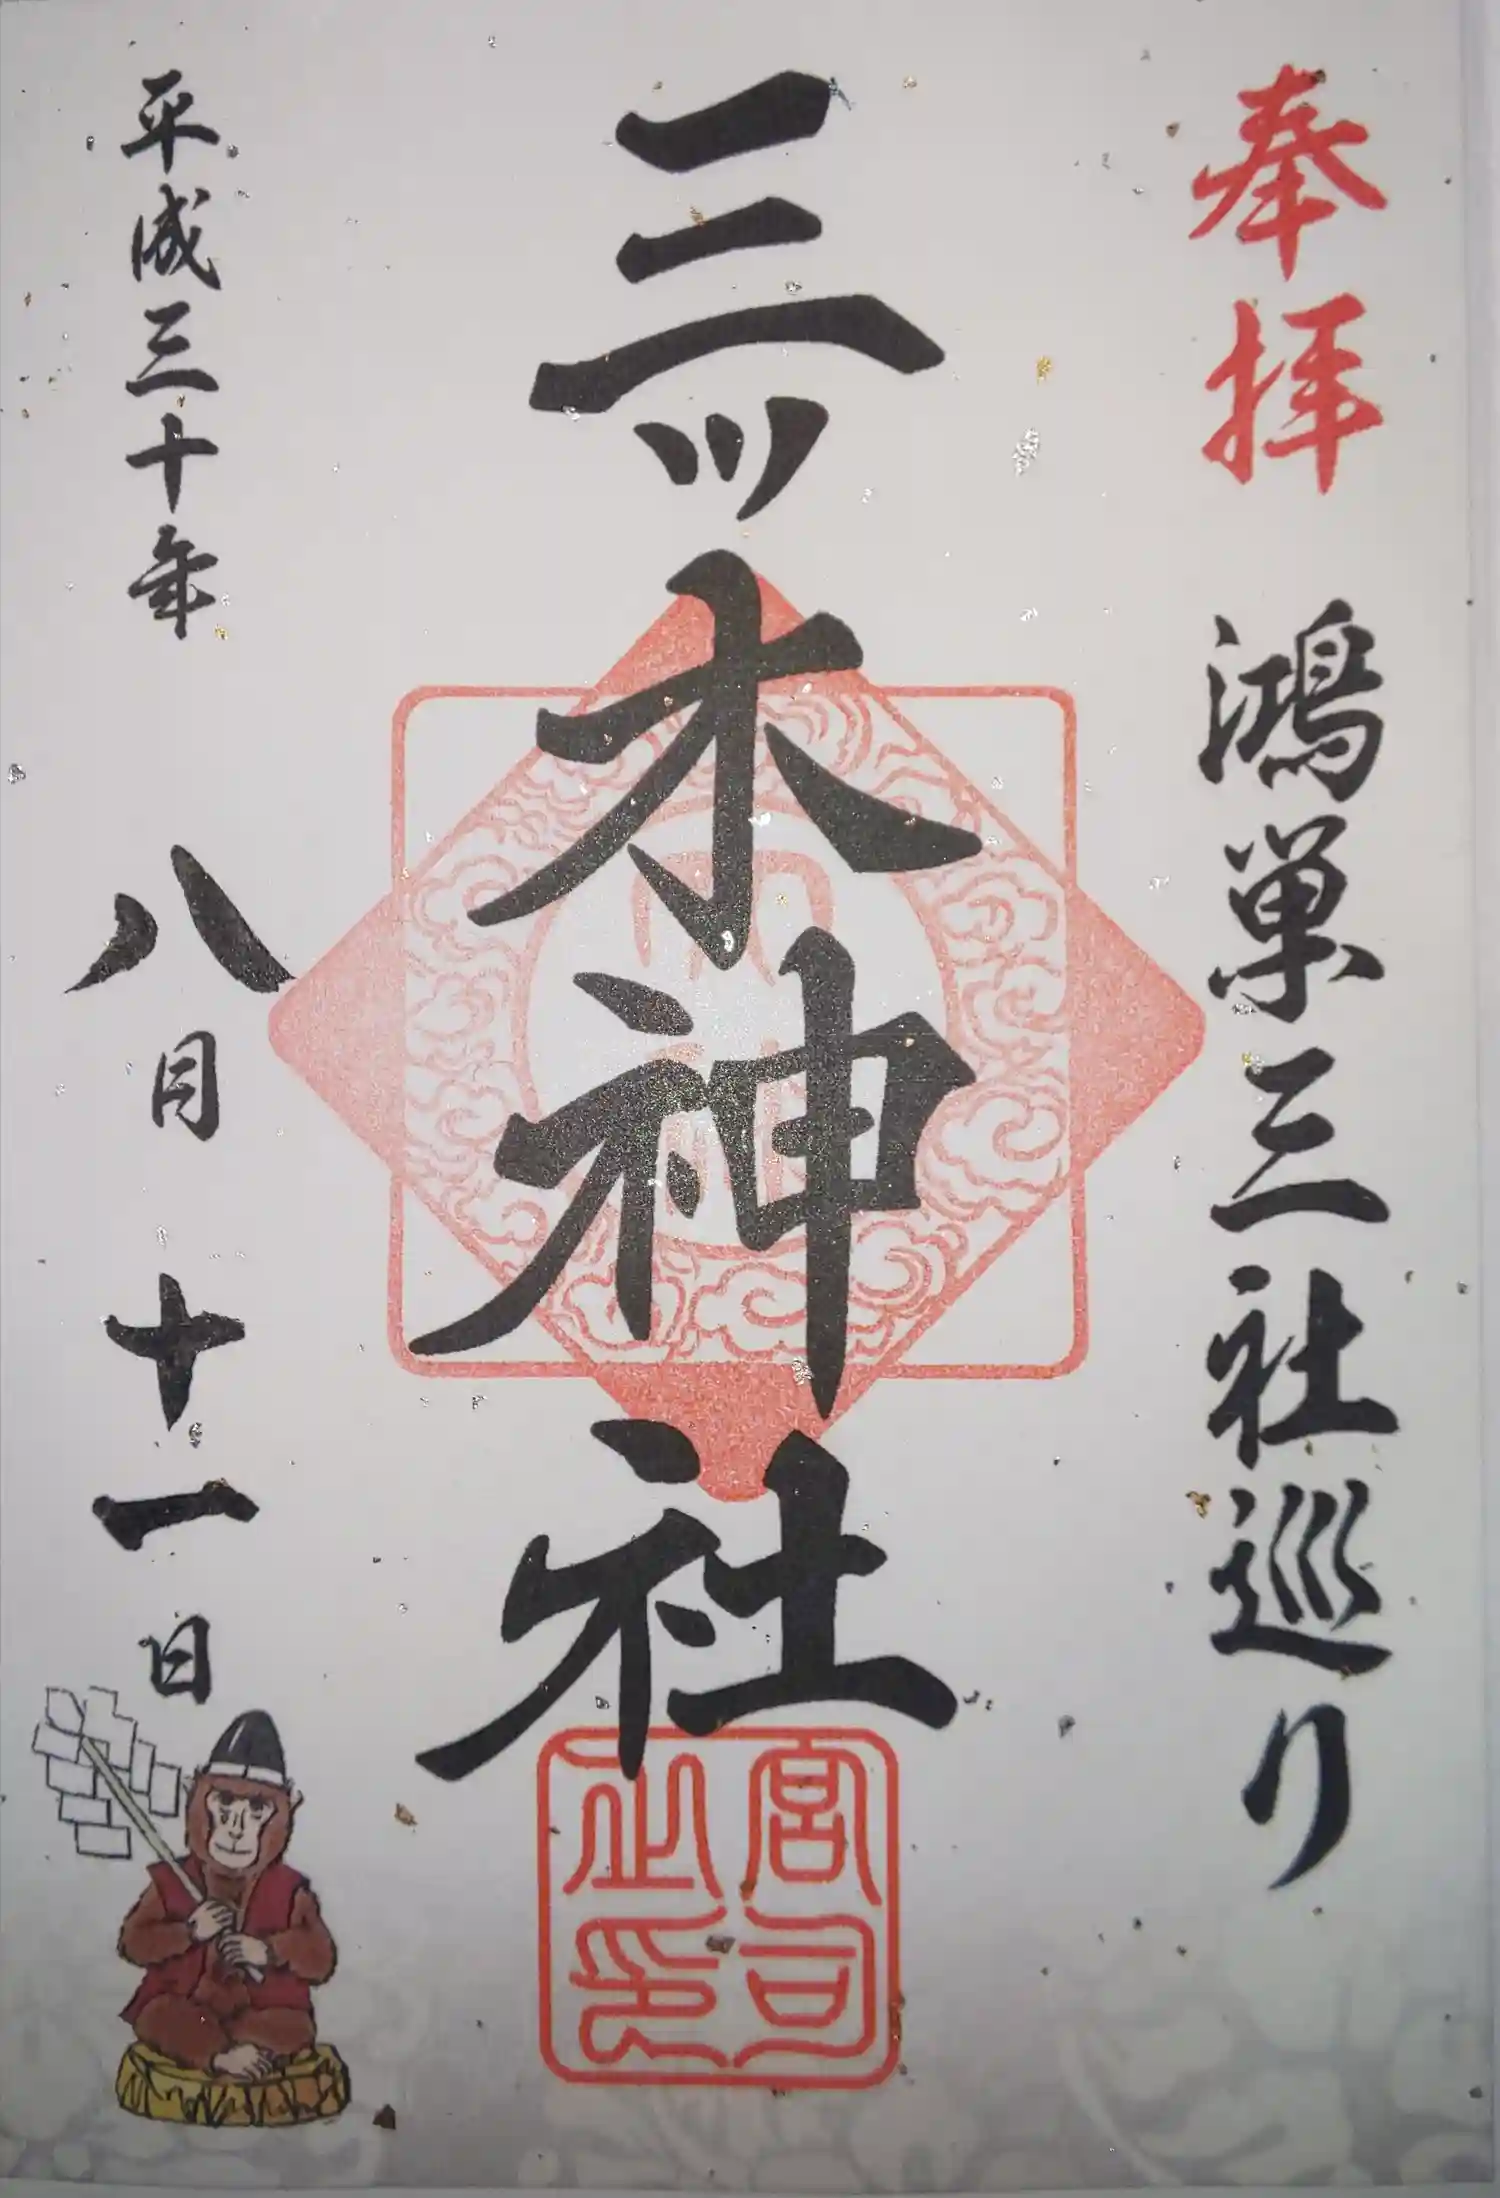 奉拝 鴻巣三社巡り
三ツ木神社
宮司之印
平成三十年 八月十一日